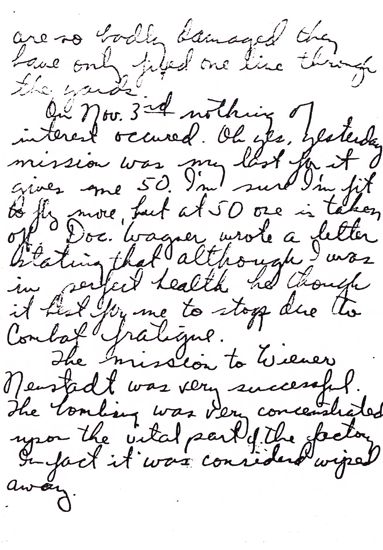 are so badly damaged they
have only fixed one line through
the yards.
On Nov. 3rd nothing of
interest occured. Oh yes, yesterday
mission was my last for it
gives me 50. I'm sure I'm fit
to fly more, but at 50 one is taken
off. Doc. Wagner wrote a letter
stating that although I was
in perfect health he though
it best for me to stop due to
Combat fratigue.
The mission to Wiener
Neustadt was very successful.
The bombing was very concenstrated
upon the vital part of the factory
In fact it was considerd wiped
away.